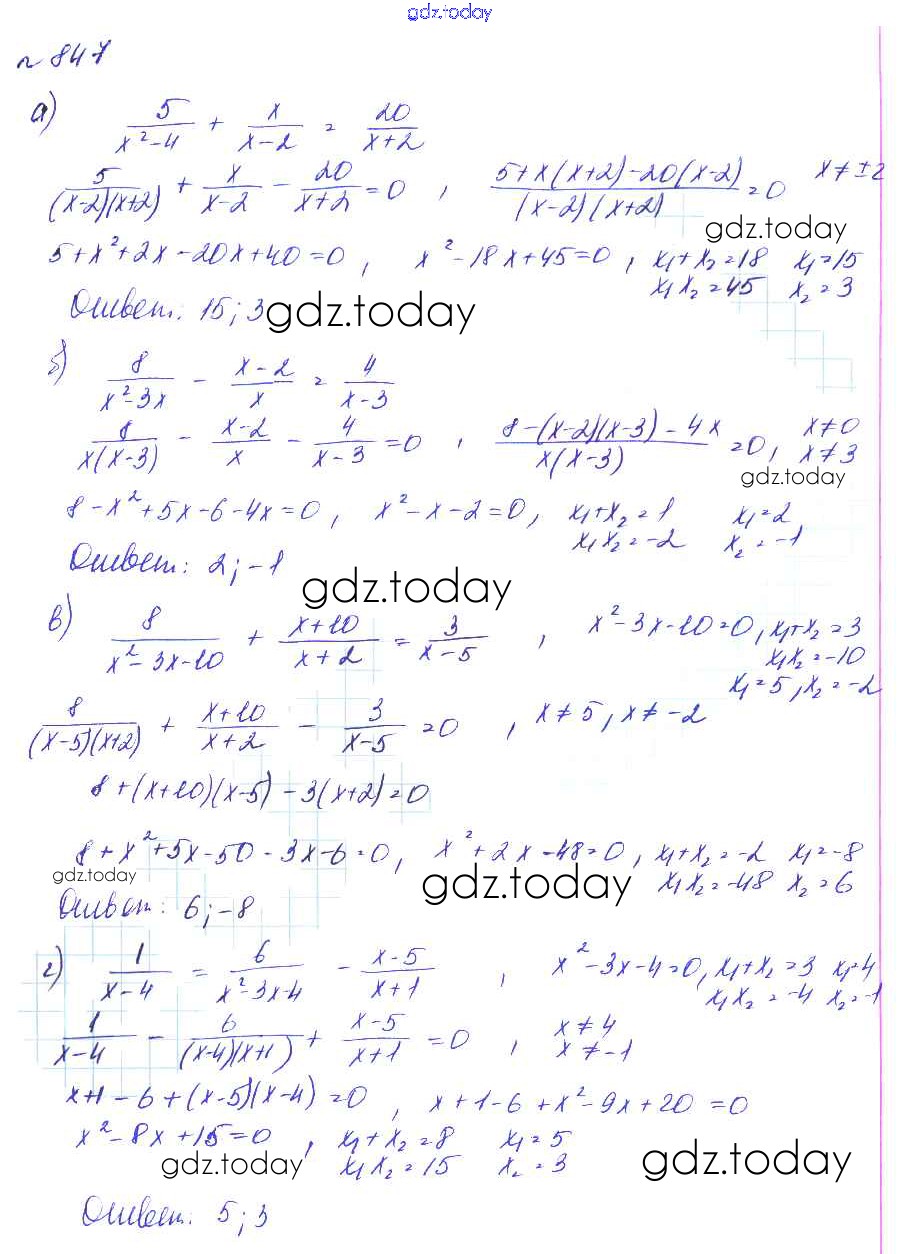 gdz.today
№ 847
а) 5/(x²-4) + x/(x-2) = 20/(x+2)
5/((x-2)(x+2)) + x/(x-2) - 20/(x+2) = 0 , (5+x(x+2)-20(x-2))/((x-2)(x+2)) = 0 x ≠ ±2
gdz.today
5+x²+2x-20x+40=0 , x²-18x+45=0 , x₁+x₂=18 x₁=15
x₁x₂=45 x₂=3
Ответ: 15; 3
gdz.today
б) 8/(x²-3x) - (x-2)/x = 4/(x-3)
8/(x(x-3)) - (x-2)/x - 4/(x-3) = 0 , (8-(x-2)(x-3)-4x)/(x(x-3)) = 0, x≠0
x≠3
gdz.today
8-x²+5x-6-4x=0 , x²-x-2=0, x₁+x₂=1 x₁=2
x₁x₂=-2 x₂=-1
Ответ: 2; -1
gdz.today
в) 8/(x²-3x-10) + (x+10)/(x+2) = 3/(x-5) , x²-3x-10=0, x₁+x₂=3
x₁x₂=-10
x₁=5, x₂=-2
8/((x-5)(x+2)) + (x+10)/(x+2) - 3/(x-5) = 0 , x≠5, x≠-2
8+(x+10)(x-5)-3(x+2)=0
8+x²+5x-50-3x-6=0, x²+2x-48=0, x₁+x₂=-2 x₁=-8
gdz.today
gdz.today
x₁x₂=-48 x₂=6
Ответ: 6; -8
г) 1/(x-4) = 6/(x²-3x-4) - (x-5)/(x+1) , x²-3x-4=0, x₁+x₂=3 x₁=4
x₁x₂=-4 x₂=-1
1/(x-4) - 6/((x-4)(x+1)) + (x-5)/(x+1) = 0 , x≠4
x≠-1
x+1-6+(x-5)(x-4)=0 , x+1-6+x²-9x+20=0
x²-8x+15=0 , x₁+x₂=8 x₁=5
x₁x₂=15 x₂=3
gdz.today
gdz.today
Ответ: 5; 3